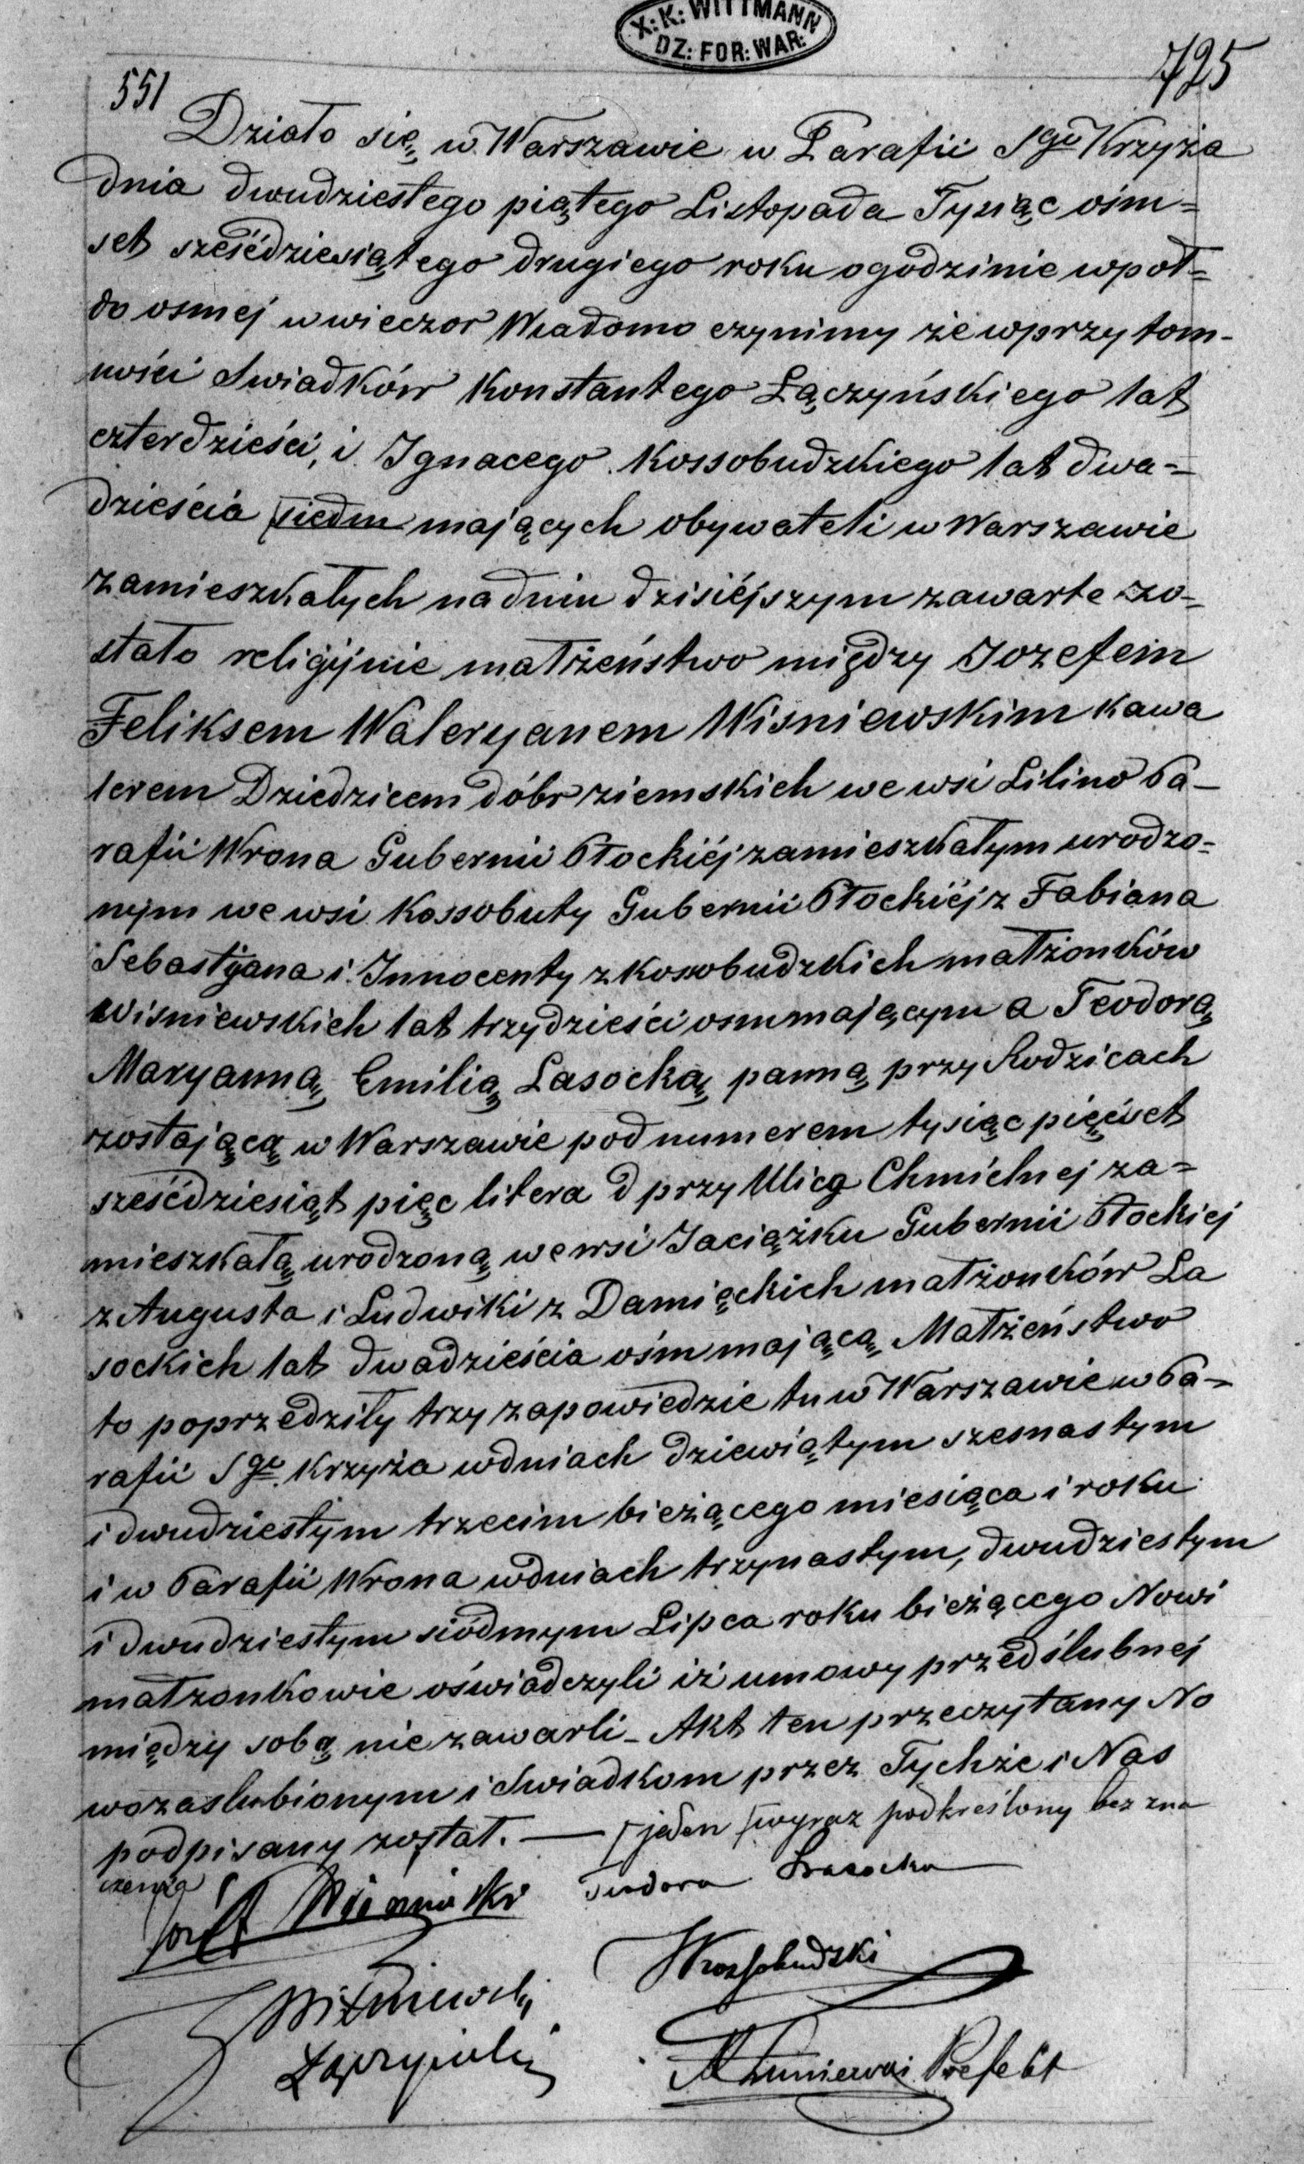 X: K: WITTMANN
DZ: FOR: WAR:
551
725
Działo się w Warszawie w Parafii Sgo Krzyża
dnia dwudziestego piątego Listopada Tysiąc ośm=
set sześćdziesiątego drugiego roku o godzinie wpoł=
do osmej w wieczor Wiadomo czynimy że wprzytom-
ności Swiadków Konstantego Łączyńskiego lat
czterdzieści, i Ignacego Kossobudzkiego lat dwa=
dzieścia siedm mających obywateli w Warszawie
zamieszkałych na dniu dzisiéjszym zawarte zo=
stało religijnie małżeństwo między Jozefem
Feliksem Waleryanem Wisniewskim kawa
lerem Dziedzicem dóbr ziemskich we wsi Lilino Pa-
rafii Wrona Gubernii Płockiéj zamieszkałym urodzo=
nym we wsi Kossobuty Gubernii Płockiéj z Fabiana
Sebastyana i Innocenty z Kossobudzkich małżonków
Wisniewskich lat trzydzieści osm mającym a Teodorą
Maryanną Emilią Lasocką panną przy Rodzicach
zostającą w Warszawie pod numerem tysiąc pięćset
sześćdziesiąt pięc litera d przy Ulicy Chmielnej za=
mieszkałą urodzoną we wsi Jaciążku Gubernii Płockiej
z Augusta i Ludwiki z Damięckich małżonków La
sockich lat dwadzieścia ośm mającą Małżeństwo
to poprzedziły trzy zapowiedzie tu w Warszawie w Pa=
rafii Sgo Krzyża w dniach dziewiątym szesnastym
i dwudziestym trzecim bieżącego miesiąca i roku
i w Parafii Wrona w dniach trzynastym, dwudziestym
i dwudziestym siódmym Lipca roku bieżącego Nowi
małzonkowie oświadczyli iż umowy przedślubnej
między sobą nie zawarli – Akt ten przeczytany No
wozaslubionym i Swiadkom przez Tychże i Nas
podpisany został. — jeden wyraz podkreślony bez zna
czenia
Józef Wisniewski Teodora Lasocka
Kossobudzki
Wiśniewski
Łączyński
Prefekt